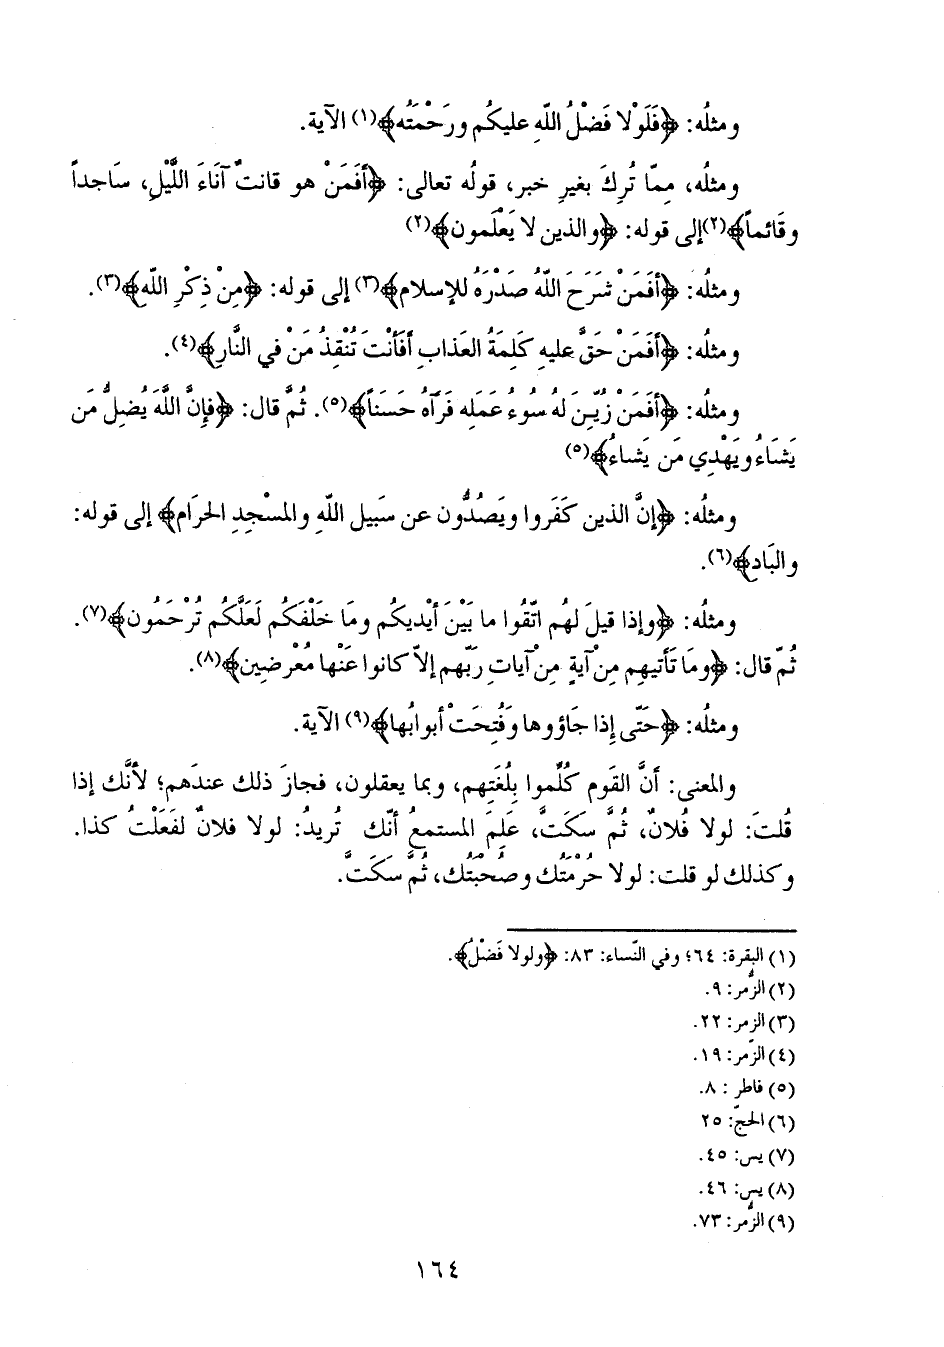 ومثلُه: ﴿فَلَوْلا فَضْلُ اللّهِ عليكُم ورَحْمَتُه﴾(١) الآية.
ومثلُه، مِمّا تُرِكَ بغيرِ خبر، قولُه تعالى: ﴿أَفَمَنْ هو قانتٌ آنَاءَ اللَّيْلِ، سَاجداً
وقَائماً﴾(٢)إلى قوله: ﴿والذين لا يَعْلَمون﴾(٢)
ومثلُه: ﴿أفَمَنْ شَرَحَ اللّهُ صَدْرَهُ للإسلام﴾(٣) إلى قوله: ﴿مِنْ ذِكْرِ اللّه﴾(٣).
ومثلُه: ﴿أفَمَنْ حَقَّ عليهِ كَلِمَةُ العَذابِ أَفَأنْتَ تُنْقِذُ مَنْ في النَّارِ﴾(٤).
ومثلُه: ﴿أفَمَنْ زُيِّنَ لهُ سُوءُ عَمَلِه فَرَآهُ حَسَنَاً﴾(٥). ثُمَّ قال: ﴿فإنَّ اللَّهَ يُضِلُّ مَن
يَشَاءُ ويَهْدِي مَن يَشاءُ﴾(٥)
ومثلُه: ﴿إنَّ الذين كَفَروا ويَصُدُّون عن سَبيل اللّهِ والمسْجِدِ الحرَام﴾ إلى قوله:
والبَادِ﴾(٦).
ومثلُه: ﴿وإذا قيلَ لهُم اتّقُوا ما بَيْنَ أيْديكُم ومَا خلْفَكُم لَعَلَّكُم تُرْحَمُون﴾(٧).
ثُمّ قال: ﴿ومَا تَأتيهِم مِنْ آيةٍ مِنْ آياتِ رَبّهم إلاّ كانوا عَنْها مُعْرضِين﴾(٨).
ومثلُه: ﴿حَتّى إذا جَاؤوها وَفُتِحَتْ أبوابُها﴾(٩) الآية.
والمعنى: أنَّ القَوم كُلِّموا بِلُغَتِهم، وبما يعقلون، فجازَ ذلك عندَهم؛ لأنَّك إذا
قُلتَ: لولا فُلانٌ، ثُمَّ سكَتَّ، عَلِمَ المستمعُ أنّك تُريدُ: لولا فلانٌ لفَعَلْتُ كذا.
وكذلك لو قلت: لولا حُرْمَتُك وصُحْبَتُك، ثُمَّ سَكَتَّ.
(١) البقرة: ٦٤؛ وفي النّساء: ٨٣: ﴿ولولا فَضْلُ﴾.
(٢) الزُّمر: ٩.
(٣) الزمر: ٢٢.
(٤) الزّمر: ١٩.
(٥) فاطر : ٨.
(٦) الحجّ: ٢٥
(٧) يس: ٤٥.
(٨) يس: ٤٦.
(٩) الزُّمر: ٧٣.
١٦٤